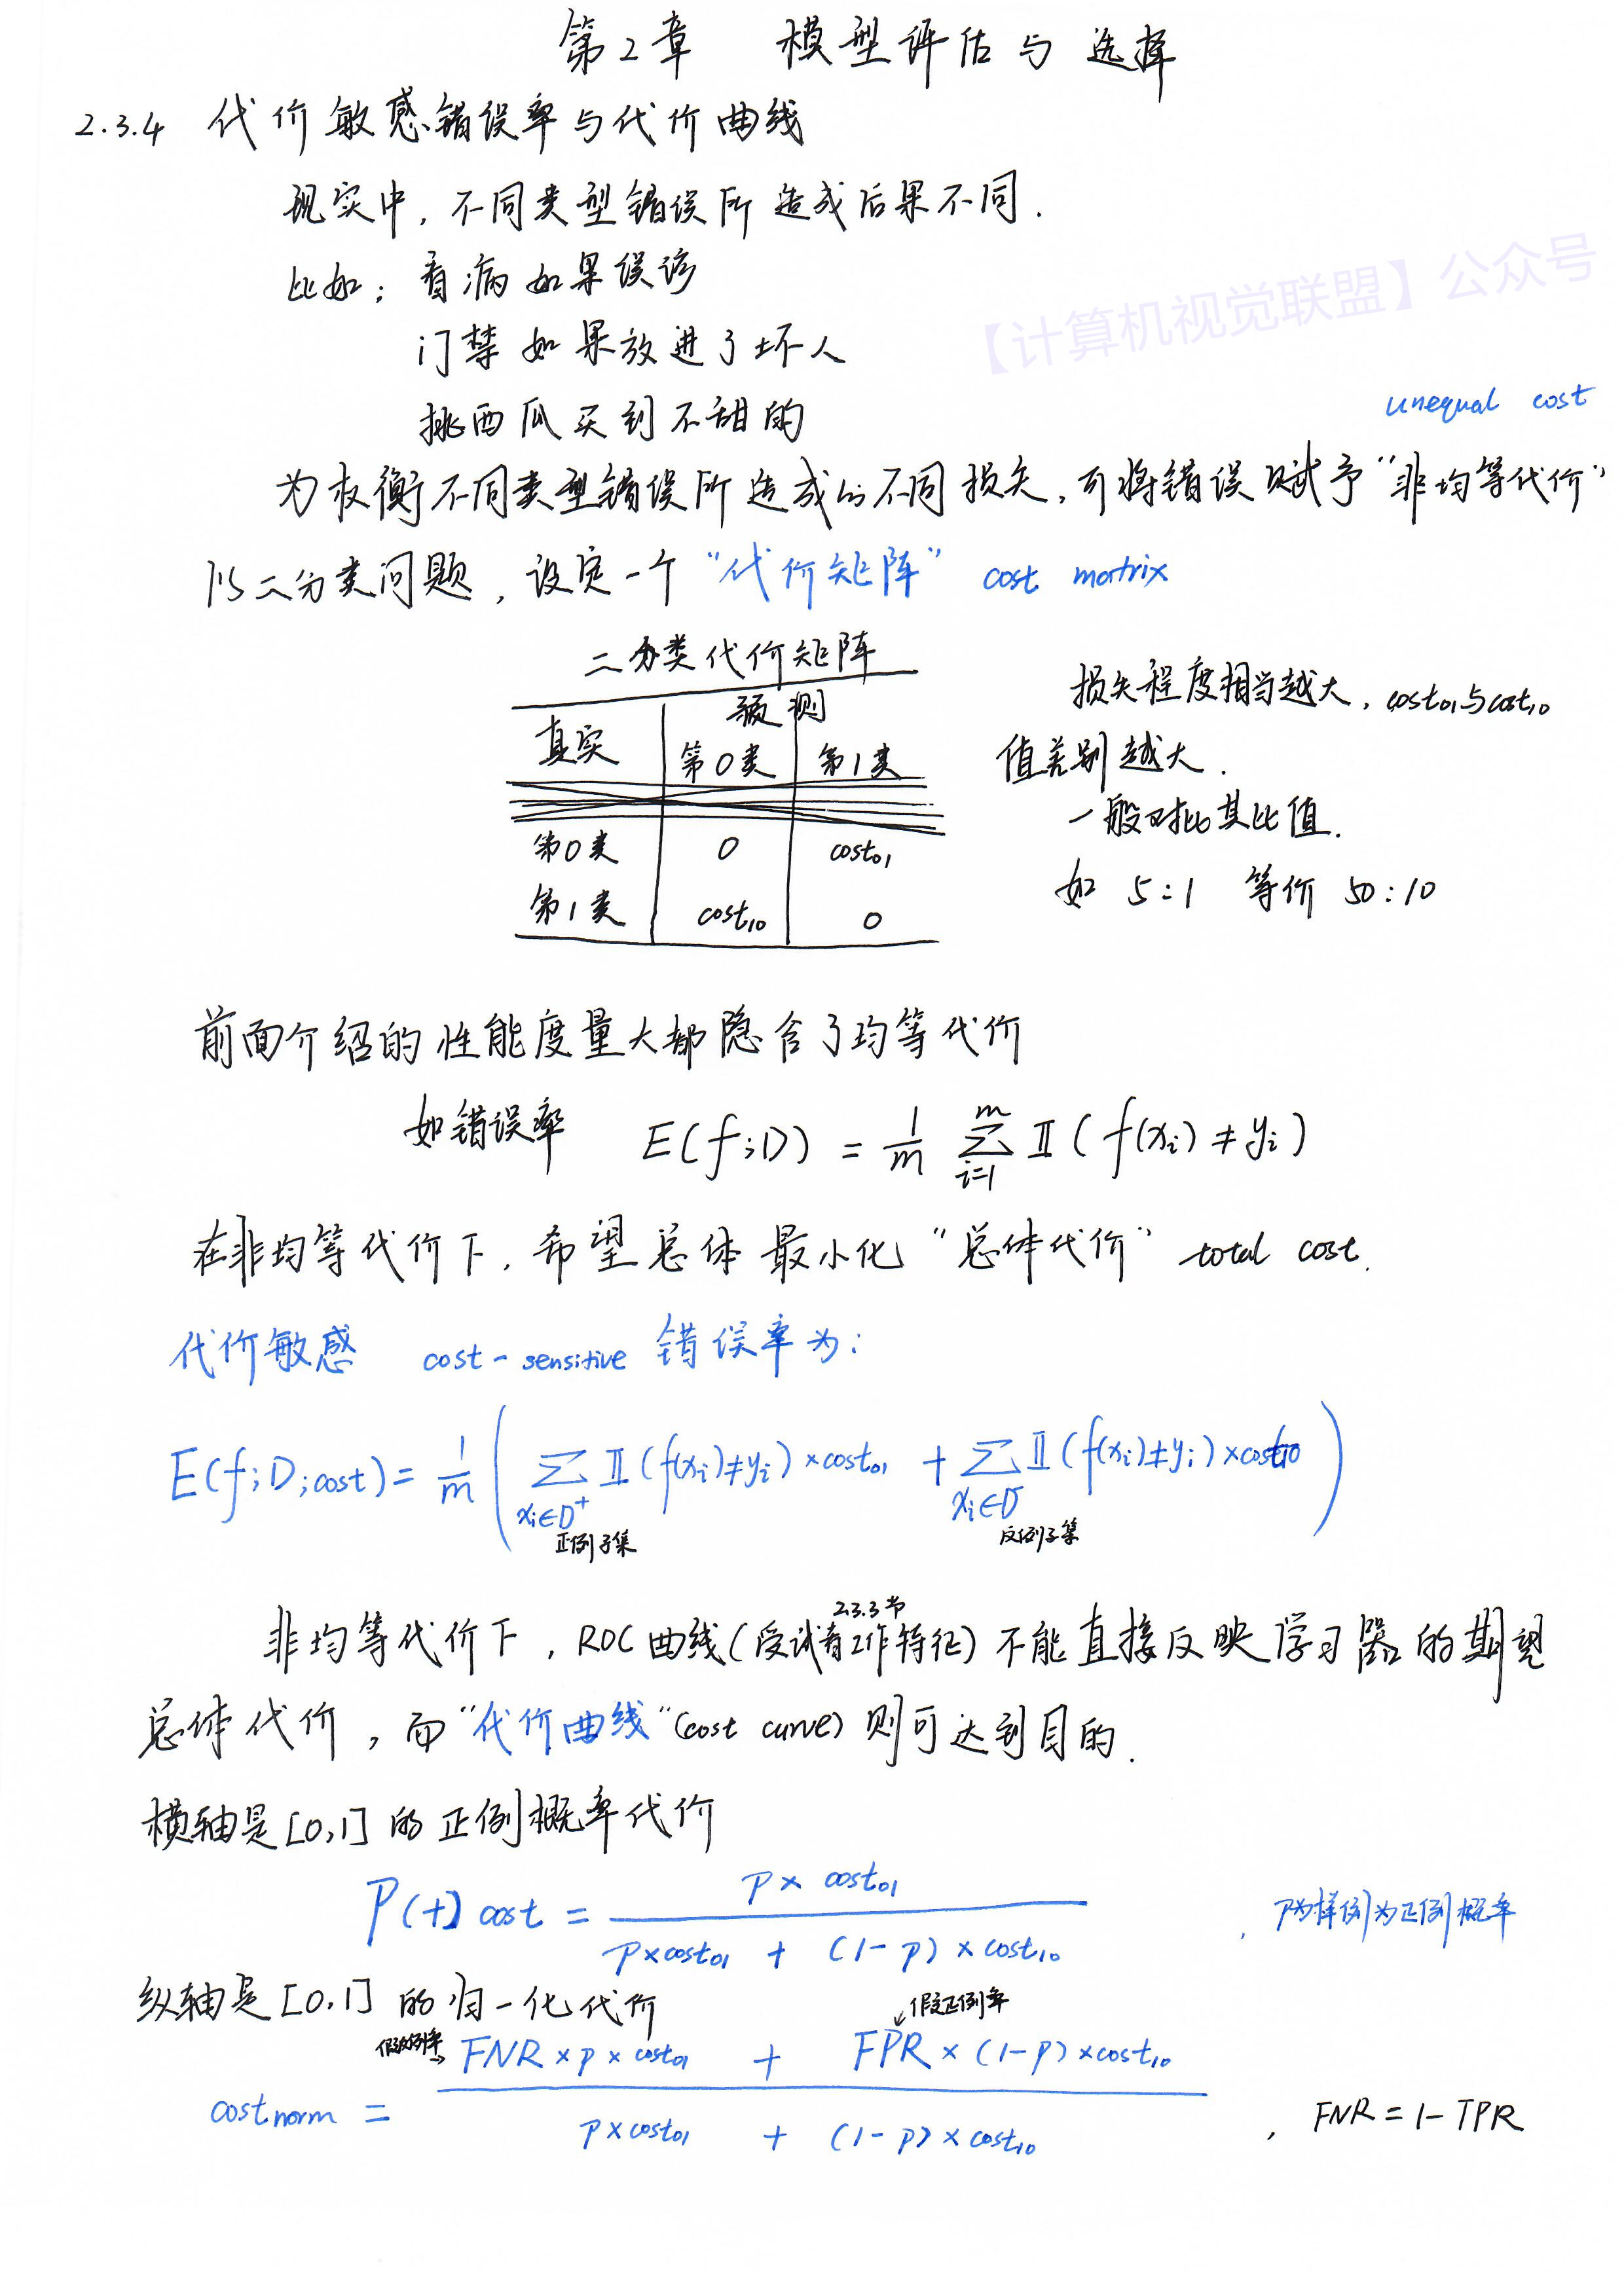 第2章 模型评估与选择
2.3.4 代价敏感错误率与代价曲线
现实中，不同类型错误所造成后果不同.
比如：看病如果误诊
门禁如果放进了坏人
【计算机视觉联盟】公众号
挑西瓜买到不甜的
unequal cost
为权衡不同类型错误所造成的不同损失，可将错误赋予“非均等代价”
以二分类问题，设定一个“代价矩阵” cost matrix
二分类代价矩阵
真实 预测
第0类 第1类
第0类 0 cost₀₁
第1类 cost₁₀ 0
损失程度相当越大，cost₀₁与cost₁₀
值差别越大.
一般对比其比值.
如 5:1 等价 50:10
前面介绍的性能度量大都隐含了均等代价
如错误率 E(f;D) = 1/m ∑_{i=1}^{m} 𝕀(f(xᵢ)≠yᵢ)
在非均等代价下，希望总体最小化“总体代价” total cost.
代价敏感 cost-sensitive 错误率为：
E(f;D;cost) = 1/m ( ∑_{xᵢ∈D⁺} 𝕀(f(xᵢ)≠yᵢ)×cost₀₁ + ∑_{xᵢ∈D⁻} 𝕀(f(xᵢ)≠yᵢ)×cost₁₀ )
正例子集 反例子集
2.3.3节
非均等代价下，ROC曲线(受试者工作特征)不能直接反映学习器的期望
总体代价，而“代价曲线”(cost curve)则可达到目的.
横轴是[0,1]的正例概率代价
P(+)cost = p×cost₀₁ / (p×cost₀₁ + (1-p)×cost₁₀) ，p为样例为正例概率
纵轴是[0,1]的归一化代价
假反例率→ ↙假正例率
cost_norm = (FNR×p×cost₀₁ + FPR×(1-p)×cost₁₀) / (p×cost₀₁ + (1-p)×cost₁₀) ，FNR=1-TPR